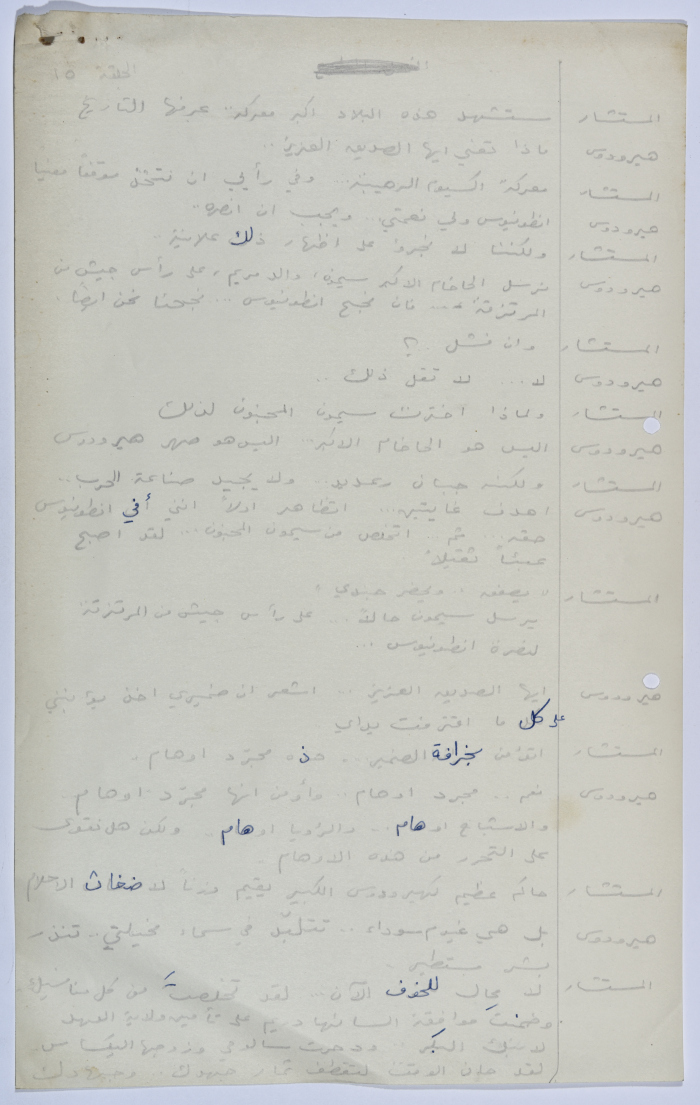 الحلقة ١٥
المستشار ستشهد هذه البلاد اكبر معركة.. عرفها التاريخ
هيرودوس ماذا تعني ايها الصديق العزيز..
المستشار معركة اكسيوم الرهيبة... وفي رأيي ان نتخذ موقفا معينا
هيرودوس انطونيوس ولي نعمتي.. ويجب ان انصره..
المستشار ولكننا لا نجرؤ على اظهار ذلك علانية..
هيرودوس نرسل الحاخام الاكبر سيمون، والد مريم، على رأس جيش من
المرتزقة.... فان نجح انطونيوس... نجحنا نحن ايضا.
المستشار وان فشل ؟
هيرودوس لا... لا تقل ذلك..
المستشار ولماذا اخترت سيمون المجنون لذلك
هيرودوس اليس هو الحاخام الاكبر... اليس هو صهر هيرودوس
المستشار ولكنه جبان رعديد.. ولا يجيد صناعة الحرب..
هيرودوس اهدف غايتين... اتظاهر اولاً انني أفي انطونيوس
حقه... ثم... اتخلص من سيمون المجنون... لقد اصبح
عبئاً ثقيلاً
المستشار يصفق.. ويحضر جندي
يرسل سيمون حالاً... على رأس جيش من المرتزقة
لنصرة انطونيوس...
هيرودوس ايها الصديق العزيز... اشعر ان ضميري اخذ يؤنبني
على كل ما اقترفت يداي
المستشار اتؤمن بخرافة الضمير... هذه مجرد اوهام.
هيرودوس نعم.. مجرد اوهام.. وأؤمن انها مجرد اوهام
والاشباح اوهام... والرؤيا اوهام.. ولكن هل نقوى
على التحرر من هذه الاوهام.
المستشار حاكم عظيم كهيرودوس الكبير يقيم وزناً لاضغاث الاحلام
هيرودوس بل هي غيوم سوداء.. تتلبد في سماء مخيلتي.. تنذر
بشر مستطير
المستشار لا مجال للخوف الآن... لقد تخلصتَ من كل منافسيك
وضمنت موافقة
لابنك البكر.. ودحرت سالومي وزوجها
لقد حان الوقت لتقطف ثمار جهودك..